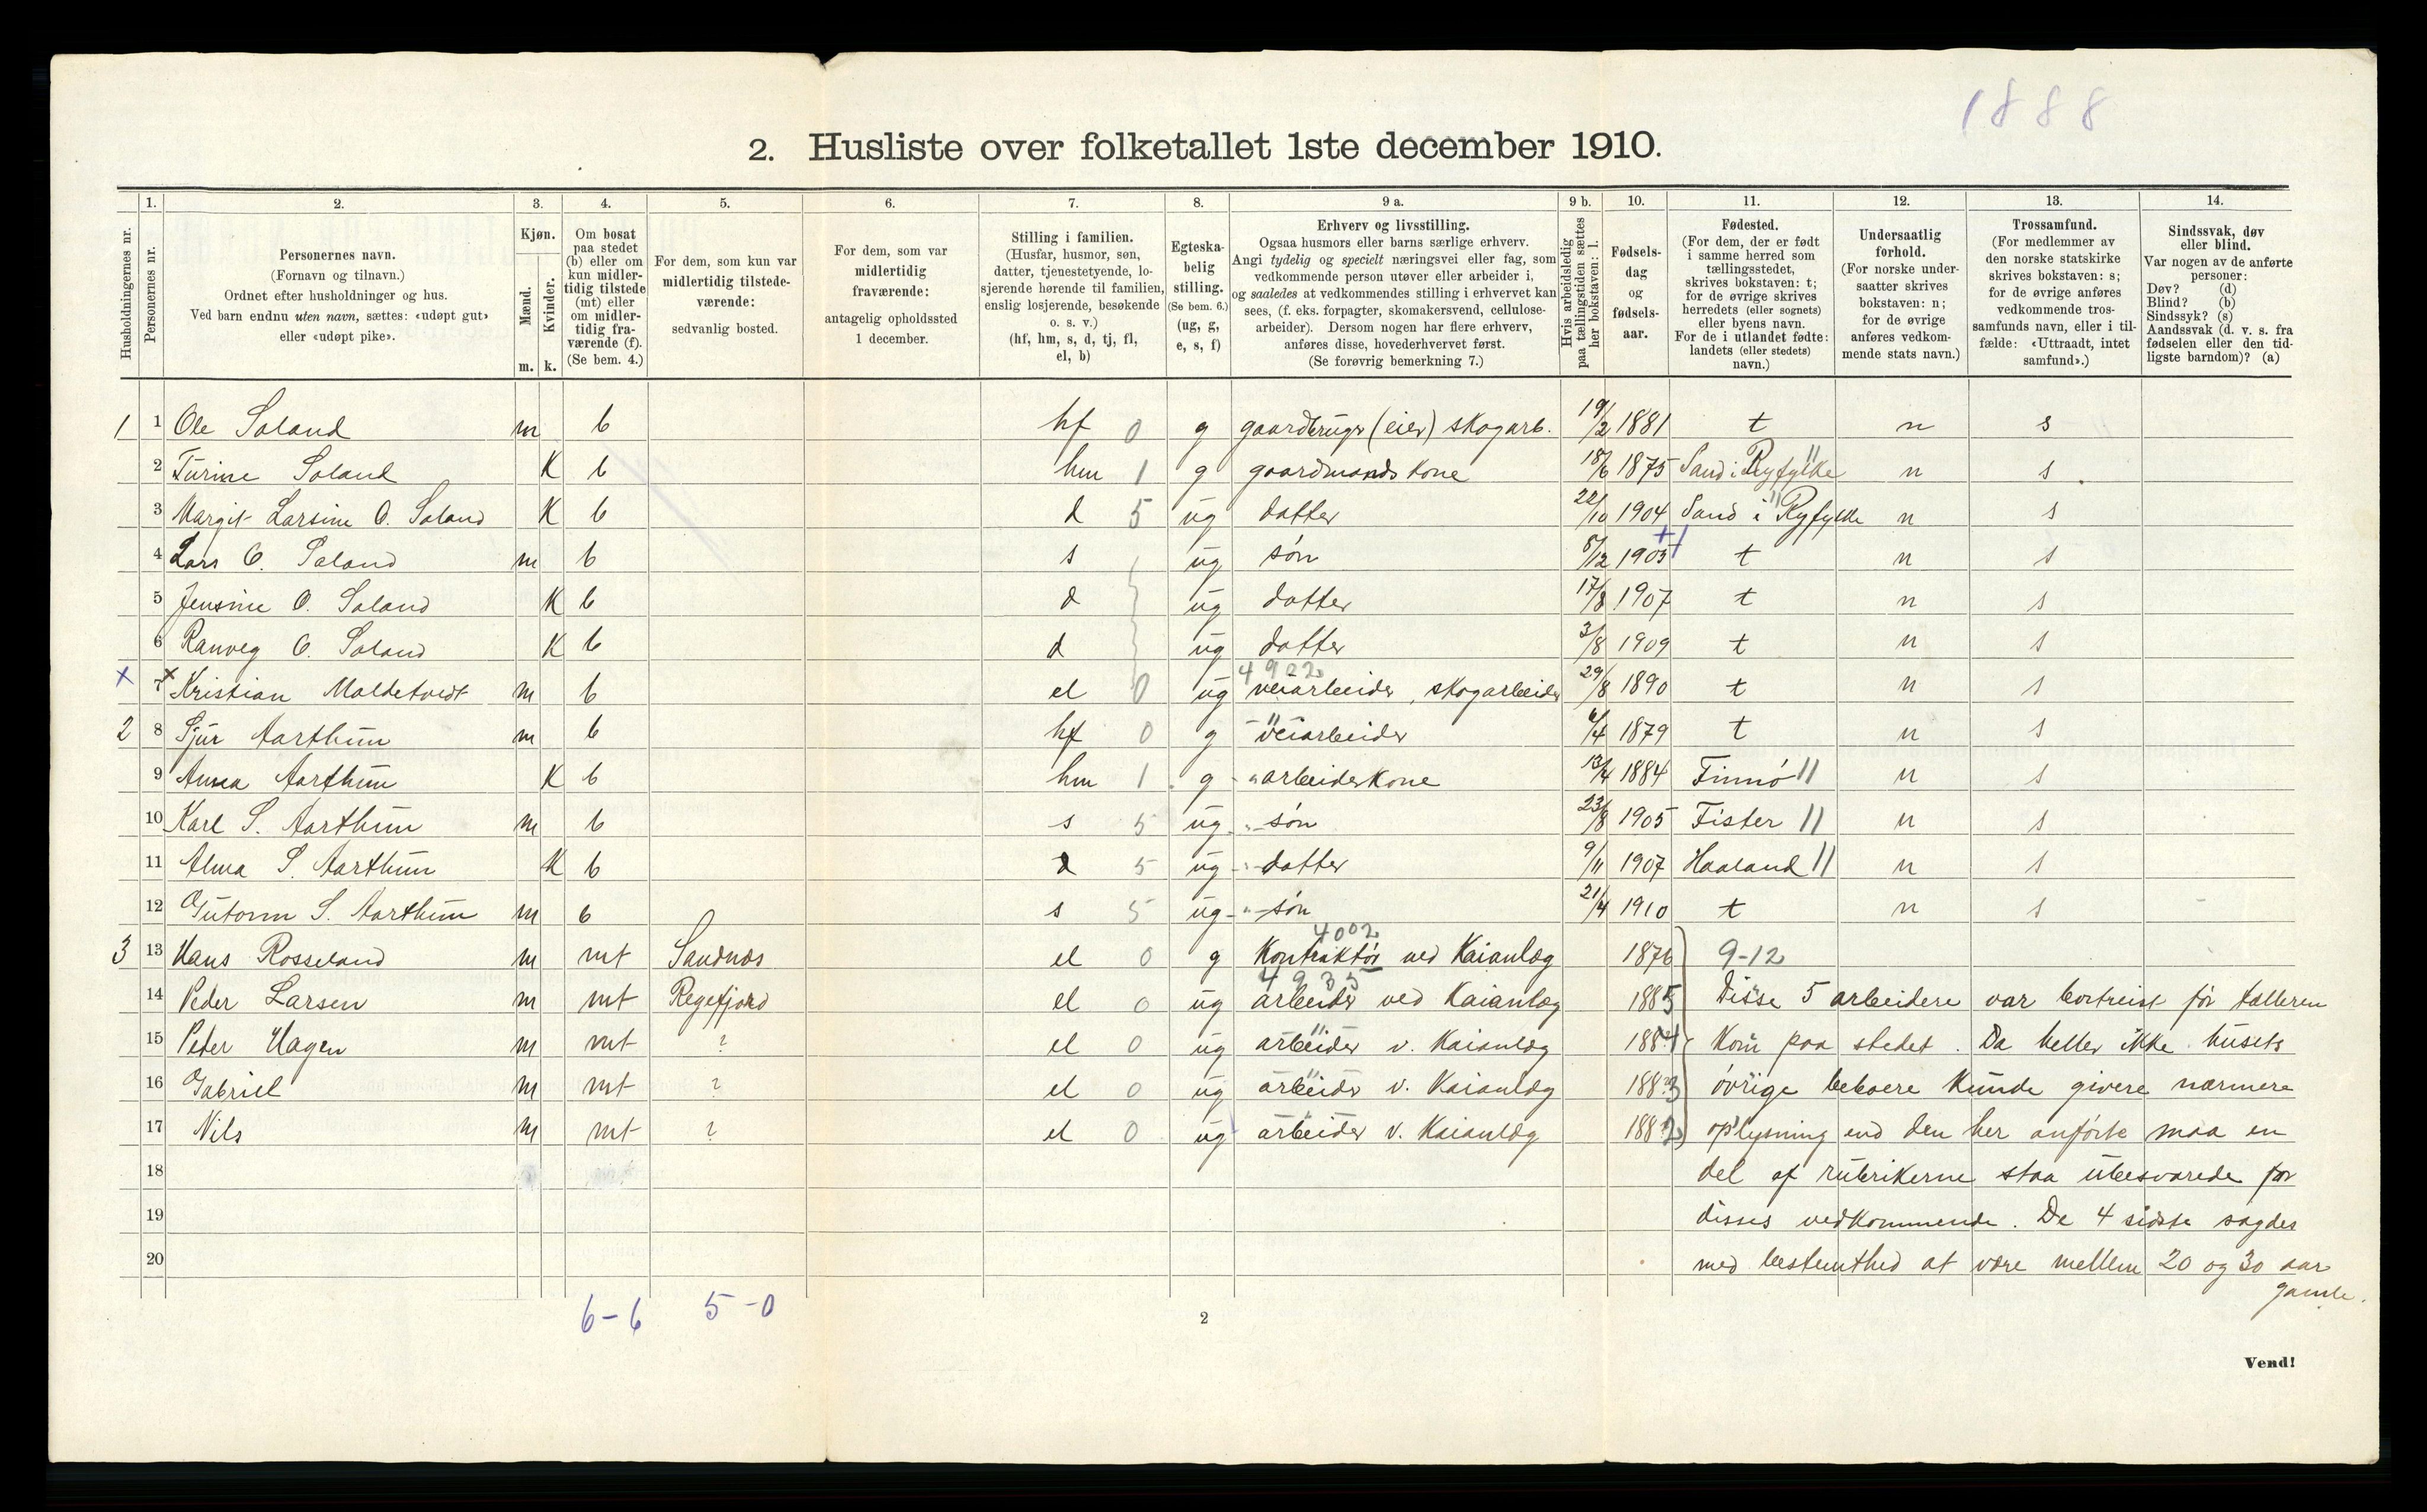 1888
2. Husliste over folketallet 1ste december 1910.
1. 2. 3. 4. 5. 6. 7. 8. 9 a. 9 b. 10. 11. 12. 13. 14.
Husholdningernes nr.
Personernes nr.
Personernes navn.
(Fornavn og tilnavn.)
Ordnet efter husholdninger og hus.
Ved barn endnu uten navn, sættes: «udøpt gut»
eller «udøpt pike».
Kjøn.
Mænd.
Kvinder.
m. k.
Om bosat
paa stedet
(b) eller om
kun midler-
tidig tilstede
(mt) eller
om midler-
tidig fra-
værende (f).
(Se bem. 4.)
For dem, som kun var
midlertidig tilstede-
værende:
sedvanlig bosted.
For dem, som var
midlertidig
fraværende:
antagelig opholdssted
1 december.
Stilling i familien.
(Husfar, husmor, søn,
datter, tjenestetyende, lo-
sjerende hørende til familien,
enslig losjerende, besøkende
o. s. v.)
(hf, hm, s, d, tj, fl,
el, b)
Egteska-
belig
stilling.
(Se bem. 6.)
(ug, g,
e, s, f)
Erhverv og livsstilling.
Ogsaa husmors eller barns særlige erhverv.
Angi tydelig og specielt næringsvei eller fag, som
vedkommende person utøver eller arbeider i,
og saaledes at vedkommendes stilling i erhvervet kan
sees, (f. eks. forpagter, skomakersvend, cellulose-
arbeider). Dersom nogen har flere erhverv,
anføres disse, hovederhvervet først.
(Se forøvrig bemerkning 7.)
Hvis arbeidsledig
paa tællingstiden sættes
her bokstaven: l.
Fødsels-
dag
og
fødsels-
aar.
Fødested.
(For dem, der er født
i samme herred som
tællingsstedet,
skrives bokstaven: t;
for de øvrige skrives
herredets (eller sognets)
eller byens navn.
For de i utlandet fødte:
landets (eller stedets)
navn.)
Undersaatlig
forhold.
(For norske under-
saatter skrives
bokstaven: n;
for de øvrige
anføres vedkom-
mende stats navn.)
Trossamfund.
(For medlemmer av
den norske statskirke
skrives bokstaven: s;
for de øvrige anføres
vedkommende tros-
samfunds navn, eller i til-
fælde: «Uttraadt, intet
samfund».)
Sindssvak, døv
eller blind.
Var nogen av de anførte
personer:
Døv? (d)
Blind? (b)
Sindssyk? (s)
Aandssvak (d. v. s. fra
fødselen eller den tid-
ligste barndom)? (a)
1 1 Ole Soland m b hf 0 g gaardbruger (eier) skogarb. 19/2 1881 t n s
2 Turine Soland K b hm 1 g gaardmandskone 18/6 1875 Sand i Ryfylke n s
3 Margit Larsine O. Soland K b d 5 ug datter 22/10 1904 Sand i Ryfylke n s
4 Lars O. Soland m b s ug søn 8/12 1905 t n s
5 Jensine O. Soland K b d ug datter 17/8 1907 t n s
6 Ranveg O. Soland K b d ug datter 3/8 1909 t n s
4922
x 7 x Kristian Moldetvedt m b el 0 ug veiarbeider, skogarbeider 29/8 1890 t n s
2 8 Sjur Aarthun m b hf 0 g veiarbeider 6/4 1879 t n s
9 Anna Aarthun K b hm 1 g -"- arbeiderkone 13/4 1884 Finnø n s
10 Karl S. Aarthun m b s 5 ug -"- søn 23/8 1905 Fister n s
11 Alma S. Aarthun K b d 5 ug -"- datter 9/11 1907 Haaland n s
12 Gutorm S. Aarthun m b s 5 ug -"- søn 21/4 1910 t n s
4002
3 13 Hans Rosseland m mt Sandnæs el 0 g Kontraktør ved Kaianlæg 1876 9-12
4935
14 Peder Larsen m mt Regefjord el 0 ug arbeider ved Kaianlæg 1885 Disse 5 arbeidere var bortreist før tælleren
15 Peter Hagen m mt ? el 0 ug arbeider v. Kaianlæg 1884 kom paa stedet. Da heller ikke husets
16 Gabriel m mt ? el 0 ug arbeider v. Kaianlæg 1883 øvrige beboere kunde givere nærmere
17 Nils m mt ? el 0 ug arbeider v. Kaianlæg 1882 oplysning end den her anførte maa en
18 del af rubrikerne staa ubesvarede for
19 disses vedkommende. De 4 sidste sagdes
20 med bestemthed at være mellem 20 og 30 aar
gamle.
6-6 5-0
2
Vend!